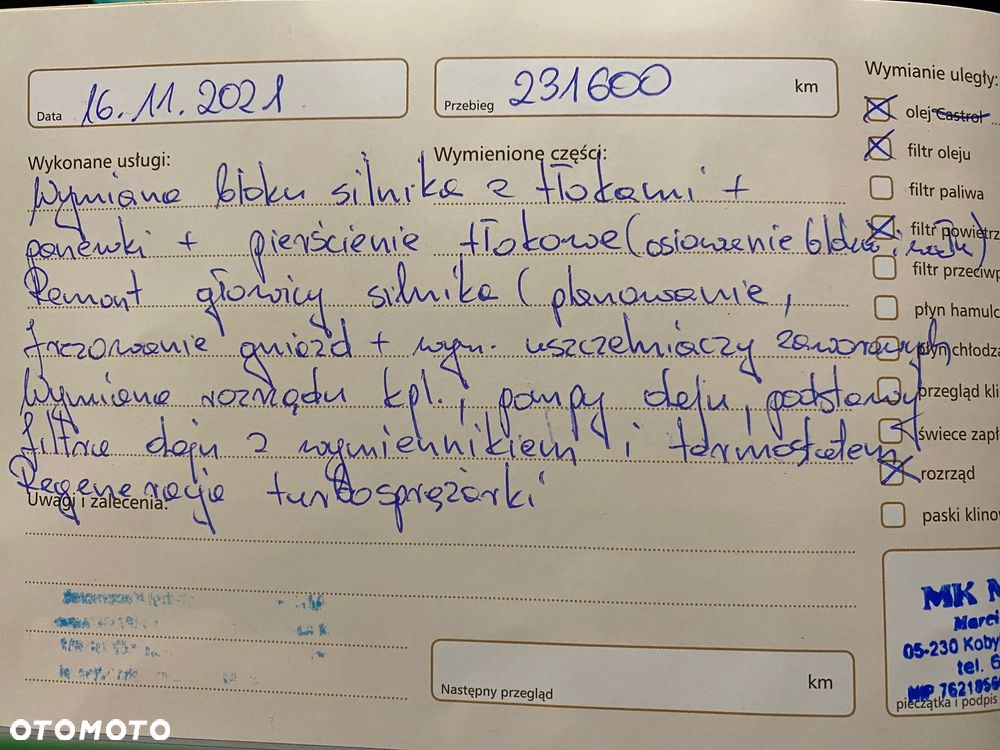 Data 16.11.2021
Przebieg 231600 km
Wymianie uległy:
olej Castrol
filtr oleju
filtr paliwa
filtr powietrz
filtr przeciwp
płyn hamulc
płyn chłodz
przegląd kli
świece zapł
rozrząd
paski klino
Wykonane usługi: Wymienione części:
Wymiana bloku silnika z tłokami +
panewki + pierścienie tłokowe (osiowanie bloku i wału)
Remont głowicy silnika (planowanie,
frezowanie gniazd + wym. uszczelniaczy zaworowych,
Wymiana rozrządu kpl., pompy oleju, podstawy
filtra oleju z wymiennikiem i termostatem
Regeneracja turbosprężarki
Uwagi i zalecenia:
Następny przegląd km
MK M
Marci
05-230 Koby
tel. 6
NIP 7621856
pieczątka i podpis
OTOMOTO